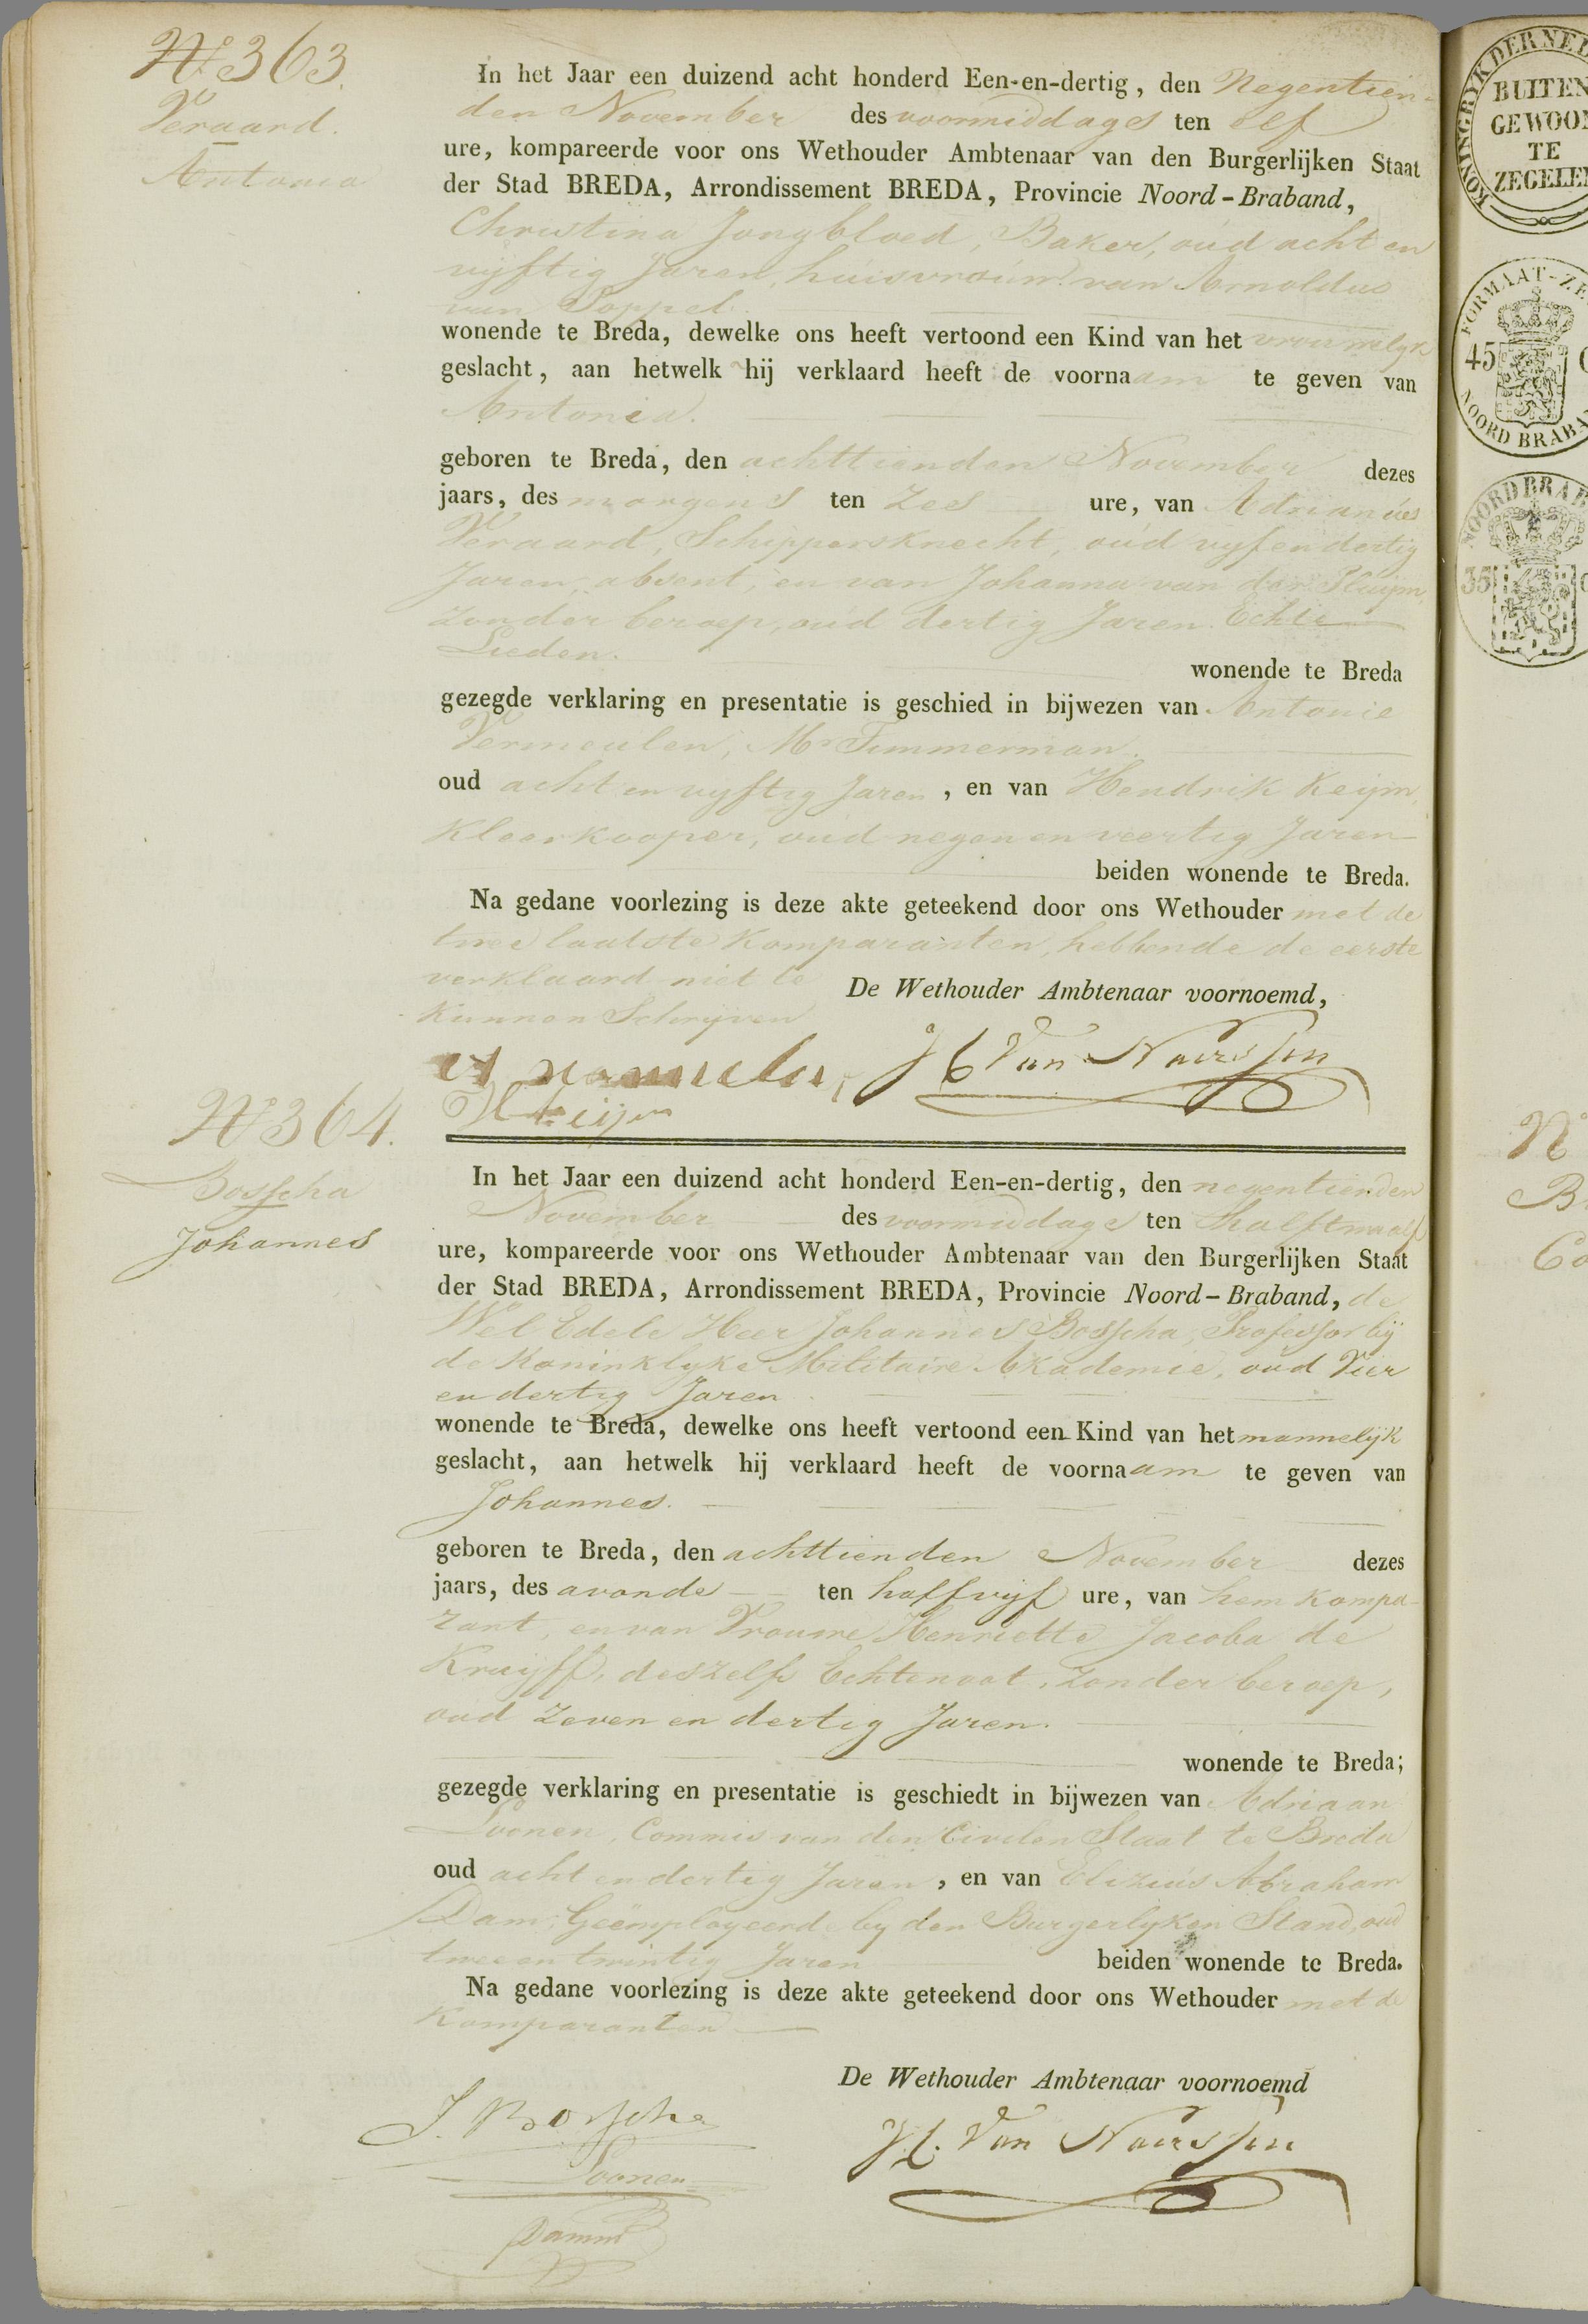 No 363.
Veraard.
Antonia
In het Jaar een duizend acht honderd Een-en-dertig, den Negentien-
den November des voormiddages ten elf
ure, kompareerde voor ons Wethouder Ambtenaar van den Burgerlijken Staat
der Stad BREDA, Arrondissement BREDA, Provincie Noord-Braband,
Christina Jongbloed, Baker, oud acht en
vijftig Jaren, huisvrouw van Arnoldus
van Poppel.
wonende te Breda, dewelke ons heeft vertoond een Kind van het vrouwelyk
geslacht, aan hetwelk hij verklaard heeft de voornaam te geven van
Antonia.
geboren te Breda, den achttienden November dezes
jaars, des morgens ten Zes ure, van Adrianus
Veraard, Schippersknecht, oud vyf en dertig
Jaren, absent, en van Johanna van der Pluijm,
Zonder beroep, oud dertig Jaren. Echte
Lieden.
wonende te Breda
gezegde verklaring en presentatie is geschied in bijwezen van Antonie
Vermeulen, Mr Timmerman.
oud acht en vyftig Jaren, en van Hendrik Keijm,
Kleerkooper, oud negen en veertig Jaren
beiden wonende te Breda.
Na gedane voorlezing is deze akte geteekend door ons Wethouder met de
twee laatste Komparanten, hebbende de eerste
verklaard niet te
Kunnen Schrijven
De Wethouder Ambtenaar voornoemd,
H Van Naerssen
H Keijm
No 364.
Bosscha
Johannes
In het Jaar een duizend acht honderd Een-en-dertig, den negentienden
November des voormiddags ten half twaalf
ure, kompareerde voor ons Wethouder Ambtenaar van den Burgerlijken Staat
der Stad BREDA, Arrondissement BREDA, Provincie Noord-Braband, de
Wel Edele Heer Johannes Bosscha, Professor bij
de Koninklyke Militaire Akademie, oud Vier
en dertig Jaren
wonende te Breda, dewelke ons heeft vertoond een Kind van het mannelijk
geslacht, aan hetwelk hij verklaard heeft de voornaam te geven van
Johannes.
geboren te Breda, den achttienden November dezes
jaars, des avonds ten half vijf ure, van hem Kompa-
rant, en van Vrouwe Henriette Jacoba de
Kruijff, deszelfs Echtenoot, Zonder beroep,
oud Zeven en dertig Jaren.
wonende te Breda;
gezegde verklaring en presentatie is geschiedt in bijwezen van Adriaan
Loonen, Commis van den Civielen Staat te Breda
oud acht en dertig Jaren, en van Elizeus Abraham
Dam, Geëmployeerd by den Burgerlyken Stand, oud
twee en twintig Jaren beiden wonende te Breda.
Na gedane voorlezing is deze akte geteekend door ons Wethouder met de
Komparanten
De Wethouder Ambtenaar voornoemd
J. Bosscha
H. Van Naerssen
Loonen
KONINGRYK DER NED
BUITEN
GEWOON
TE
ZEGELEN
FORMAAT-ZE
45
NOORD BRABA
NOORD BRAB
35
No
B
Co